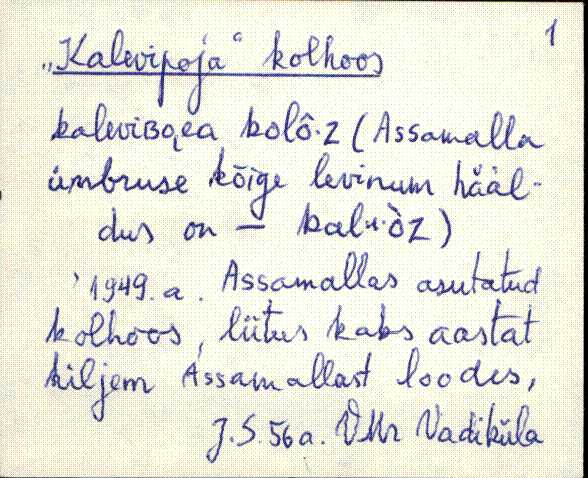 1
„Kalevipoja“ kolhoos
kaleviʙo̭ea kolô·z (Assamalla
ümbruse kõige levinum hääl-
dus on – kalu·òz)
1949.a. Assamallas asutatud
kolhoos, liitus kaks aastat
hiljem Assamallast loodes,
J.S. 56 a. VMr Vadiküla